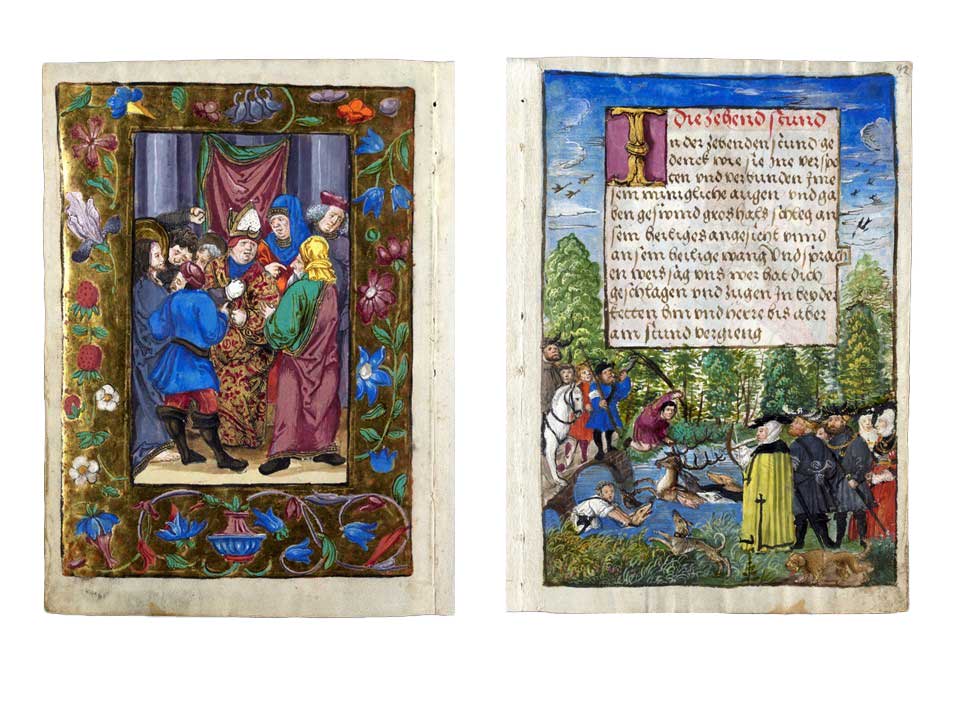 92
Die zehend stund
In der zehenden stund ge
denck wie sie ine verspo
ten vnd verbunden Ime
sein minigliche augen vnd ga
ben geswind gros hals schleg an
sein heiliges angesicht vnnd
an sein heilige wang Vnd sprach
en weissag vns wer hat dich
geschlagen vnd zugen In
ketten hin vnd heere bis aber
ain stund vergieng